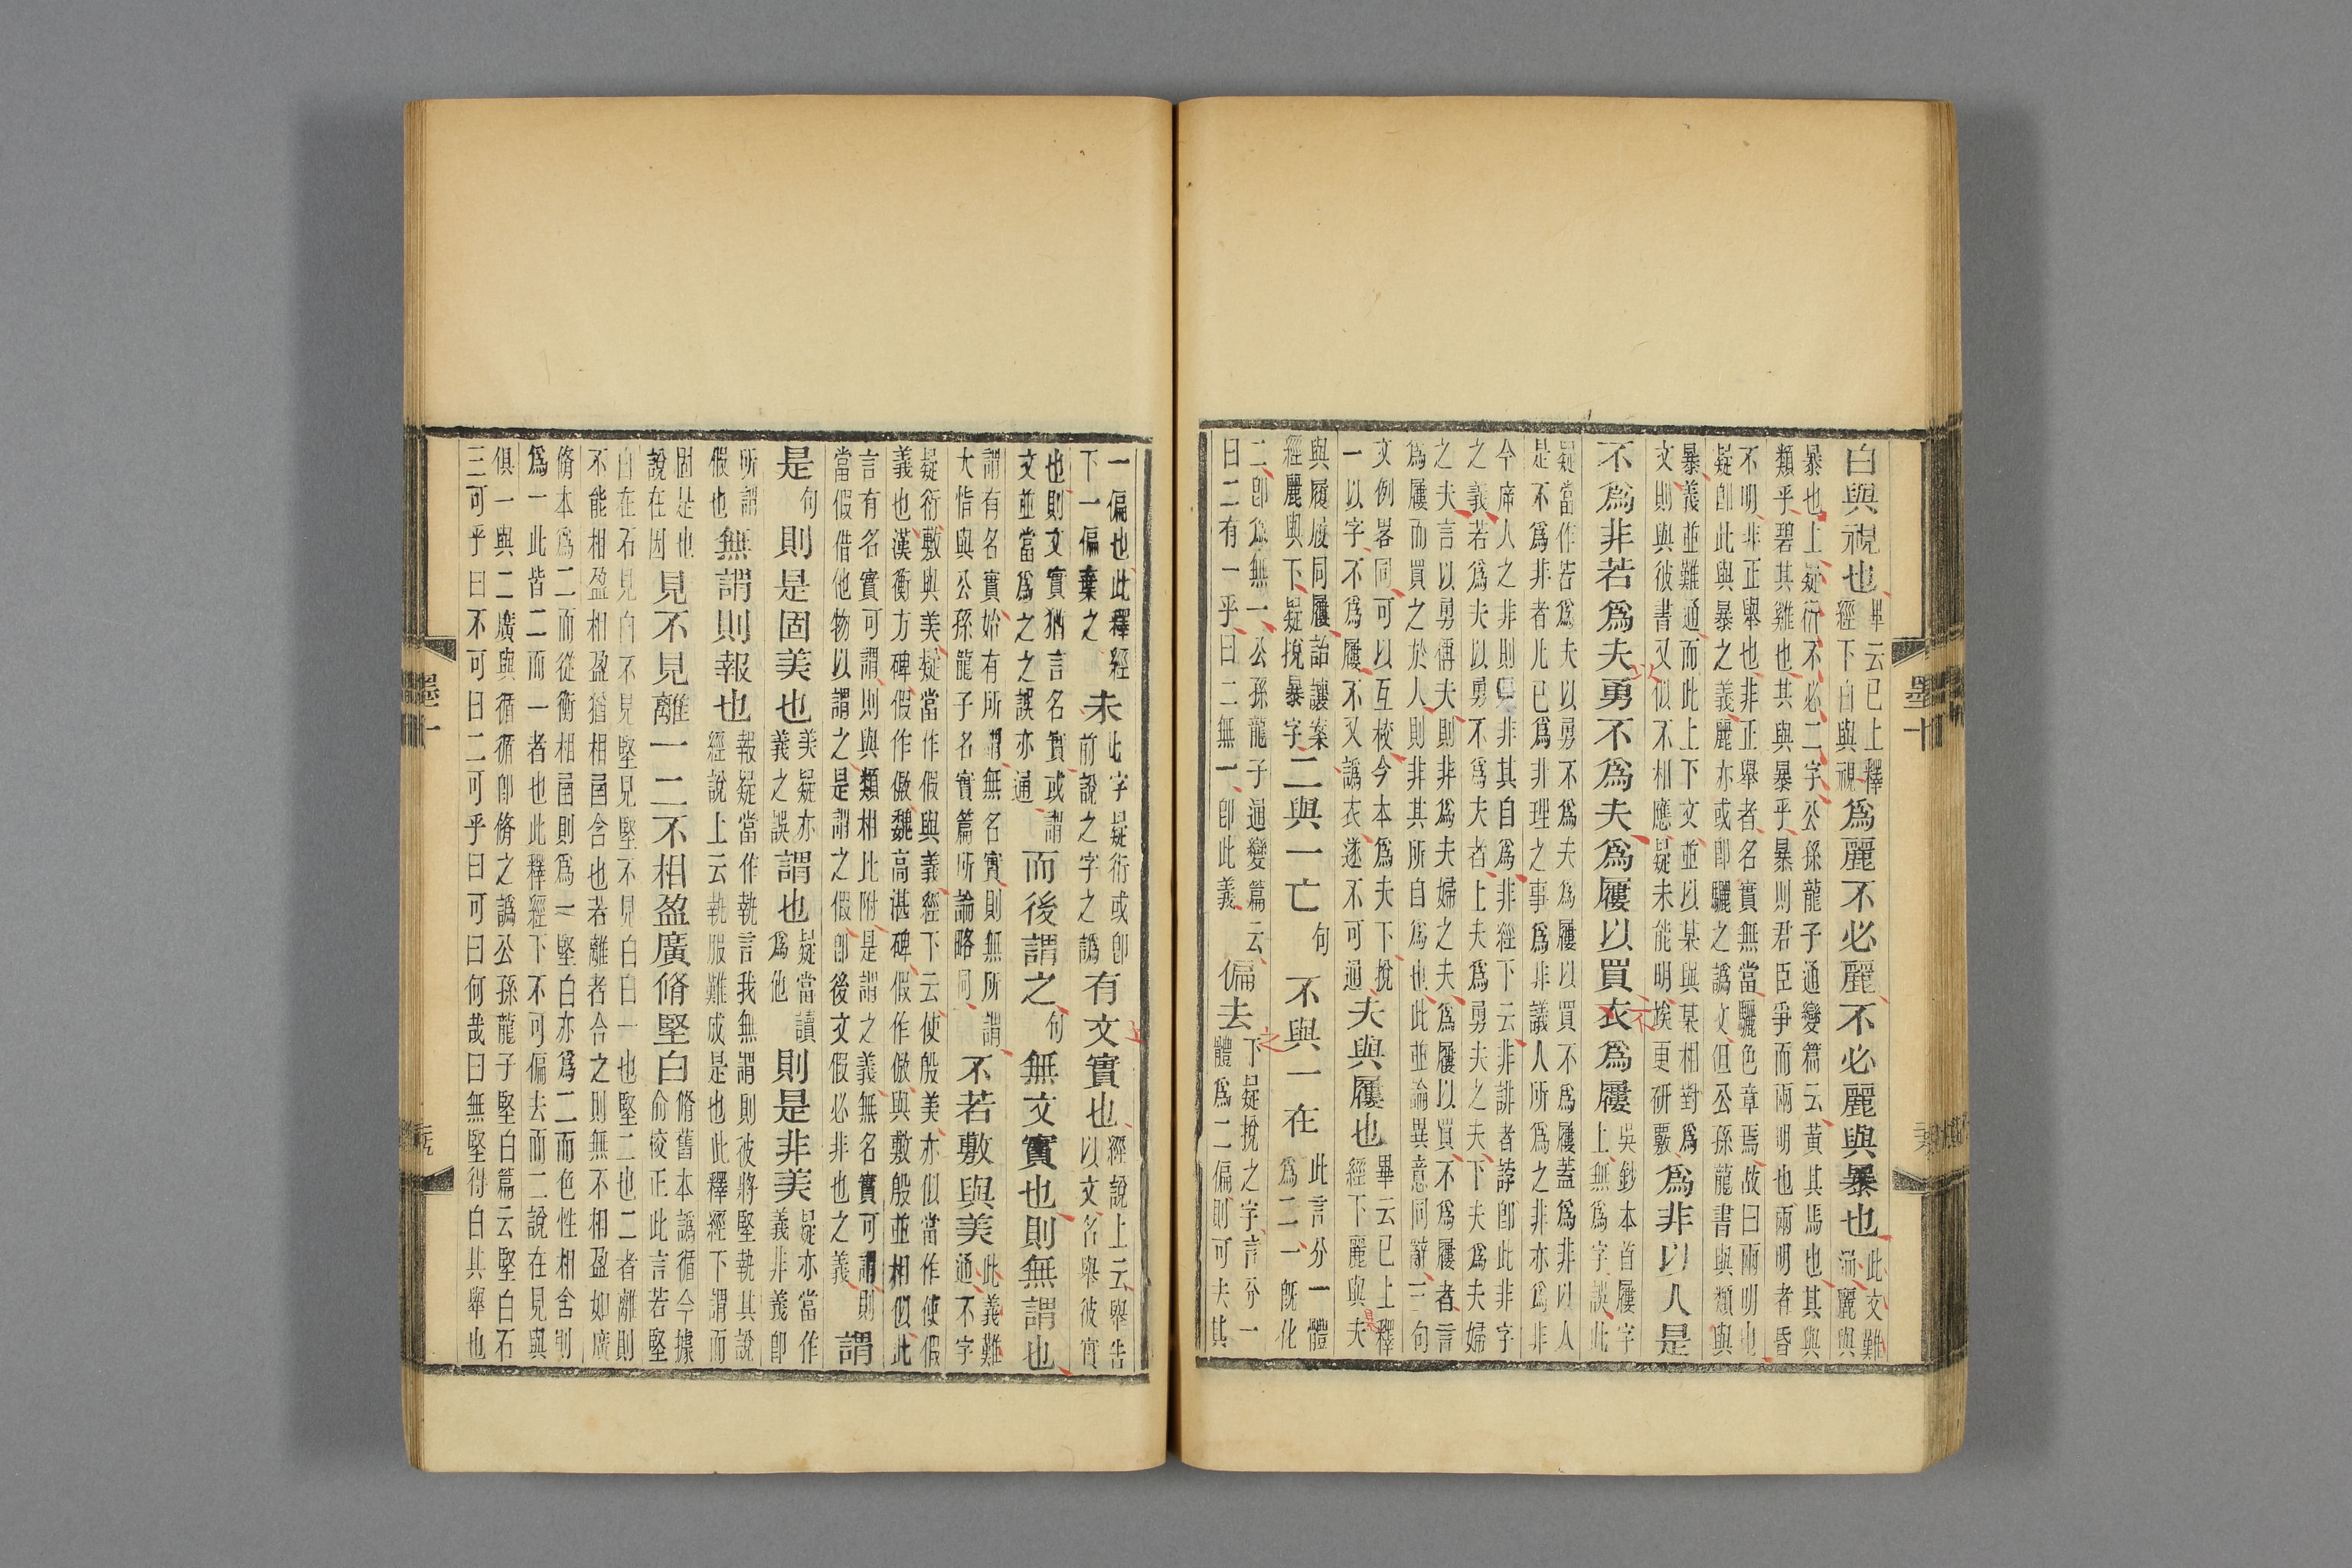 白與視也畢云已上釋經下白與視爲麗不必麗不必麗與暴也此文難通麗與
暴也上疑衍不必二字公孫龍子通變篇云黃其馬也其與
類乎碧其雞也其與暴乎暴則君臣爭而兩明也兩明者昏
不明非正舉也非正舉者名實無當驪色章焉故曰兩明也
疑卽此與暴之義麗亦或卽驪之譌文但公孫龍書與類與
暴義並難通而此上下文並以某與某相對爲
文則與彼書又似不相應疑未能明埃更研覈爲非以人是
不爲非若爲夫勇不爲夫爲屨以買衣爲屨吳鈔本首屨字上無爲字誤此
疑當作若爲夫以勇不爲夫爲屨以買不爲屨蓋爲非以人
是不爲非者凡已爲非理之事爲非議人所爲之非亦爲非
今席人之非則非其自爲非經下云非誹者誖卽此非字
之義若爲夫以勇不爲夫者上夫爲勇夫之夫下夫爲夫婦
之夫言以勇傳夫則非爲夫婦之夫爲屨以買不爲屨者言
爲屨而買之於人則非其所自爲也此並論異意同辭三句
文例畧同可以互校今本爲夫下挩
一以字不爲屨不又譌衣遂不可通夫與屨也畢云已上釋經下麗與夫
與履屐同屨詒讓案
經麗與下疑挩暴字二與一亡句不與一在此言分一體爲二一旣化
二卽爲無一公孫龍子通變篇云
曰二有一乎曰二無一卽此義偏去下疑挩之字言分一體爲二偏則可夫其
墨十
一偏也此釋經
下一偏棄之未此字疑衍或卽前說之字之譌有文實也經說上云舉告以文名舉彼實
也則文實猶言名實或謂
文並當爲之之誤亦通而後謂之句無文實也則無謂也
謂有名實始有所謂無名實則無所謂
大恉與公孫龍子名實篇所論略同不若敷與美此義難通不字
疑衍敷與美疑當作假與義經下云使殷美亦似當作使假
義也漢衡方碑假作儌魏高湛碑假作儌與敷殷並相似此
言有名實可謂則與類相比附是謂之義無名實可謂則
當假借他物以謂之是謂之假卽後文假必非也之義謂
是句則是固美也美疑亦義之誤謂也疑當爲他讀則是非美疑亦當作義非義卽
所謂
假也無謂則報也報疑當作執言我無謂則彼將堅執其說經說上云執服難成是也此釋經下謂而
固是也
說在因見不見離一二不相盈廣脩堅白脩舊本譌循今據俞校正此言若堅
白在石見白不見堅見堅不見白白一也堅二也二者離則
不能相盈相盈猶相圅含也若離者合之則無不相盈如廣
脩本爲二而從衡相圅則爲一堅白亦爲二而色性相含則
爲一此皆二而一者也此釋經下不可偏去而二說在見與
俱一與二廣與循循卽脩之譌公孫龍子堅白篇云堅白石
三可乎曰不可曰二可乎曰可曰何哉曰無堅得白其舉也
墨十